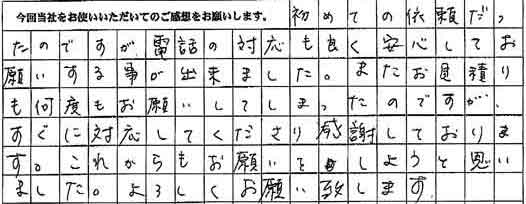 今回当社をお使いいただいてのご感想をお願いします。 初めての依頼だっ
たのですが、電話の対応も良く安心してお
願いする事が出来ました。またお見積り
も何度もお願いしてしまったのですが、
すぐに対応してくださり感謝しておりま
す。これからもお願いをしようと思い
ました。よろしくお願い致します。